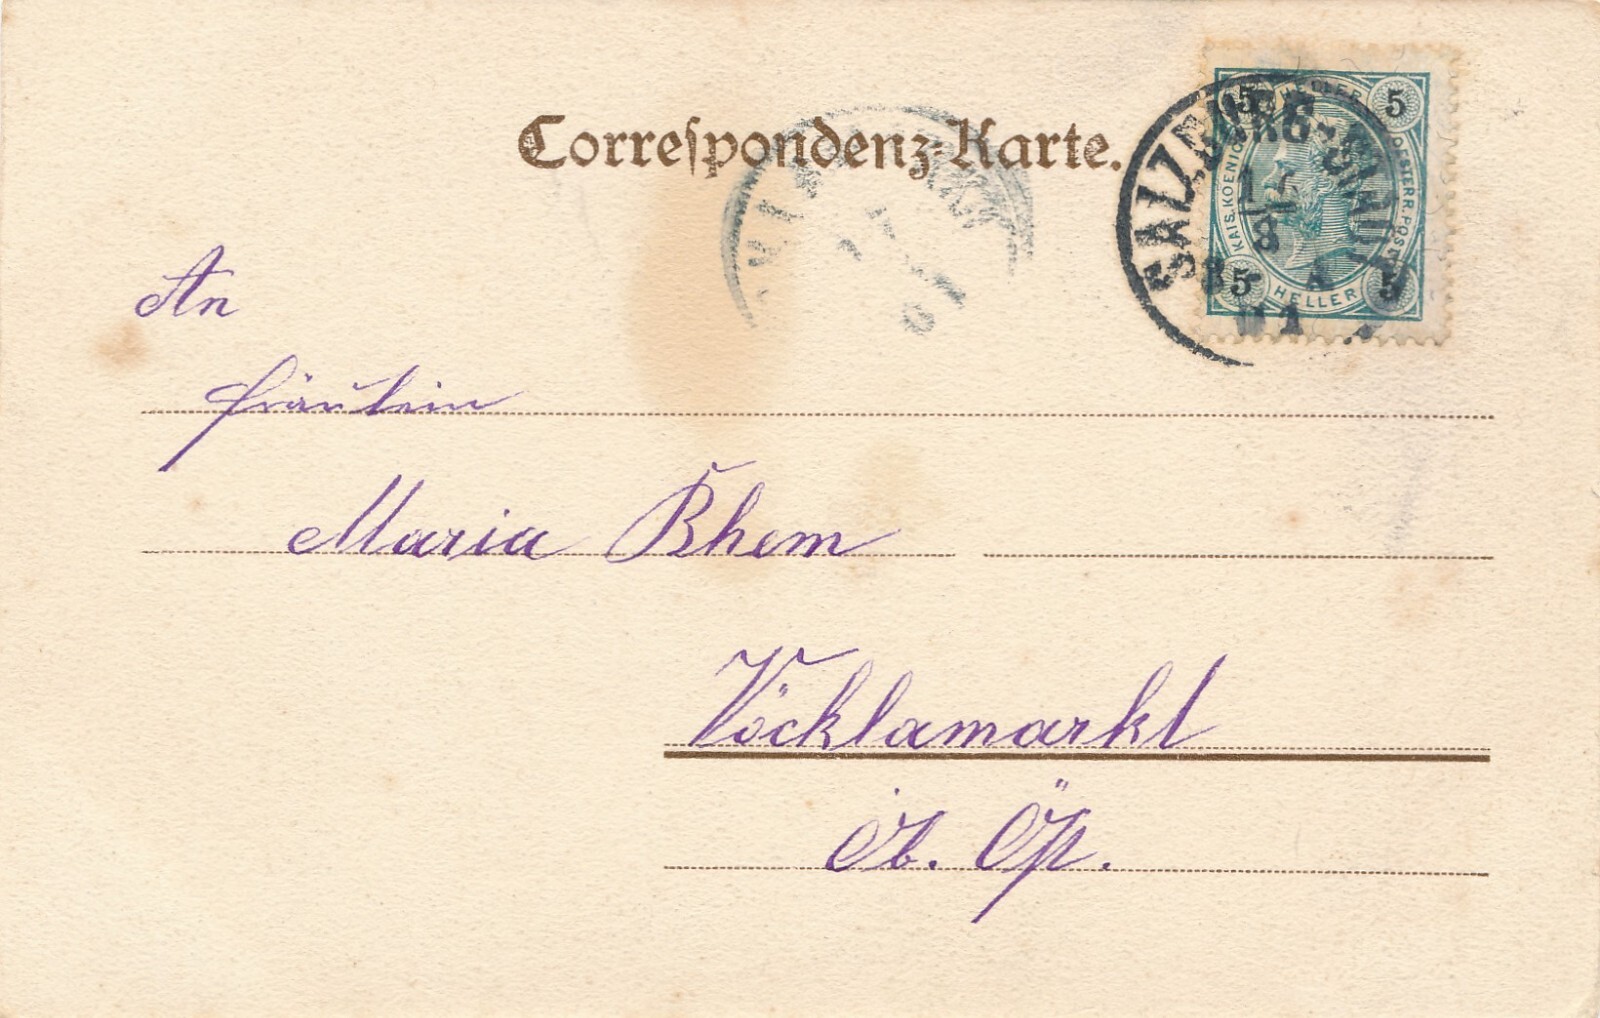 Correſpondenz-Karte.
5 HELLER 5
KAIS. KOENIGL. OESTERR. POST
5 HELLER 5
SALZBURG-
8
An
Fräulein
Maria Bhem
Vöcklamarkt
Ob. Öst.